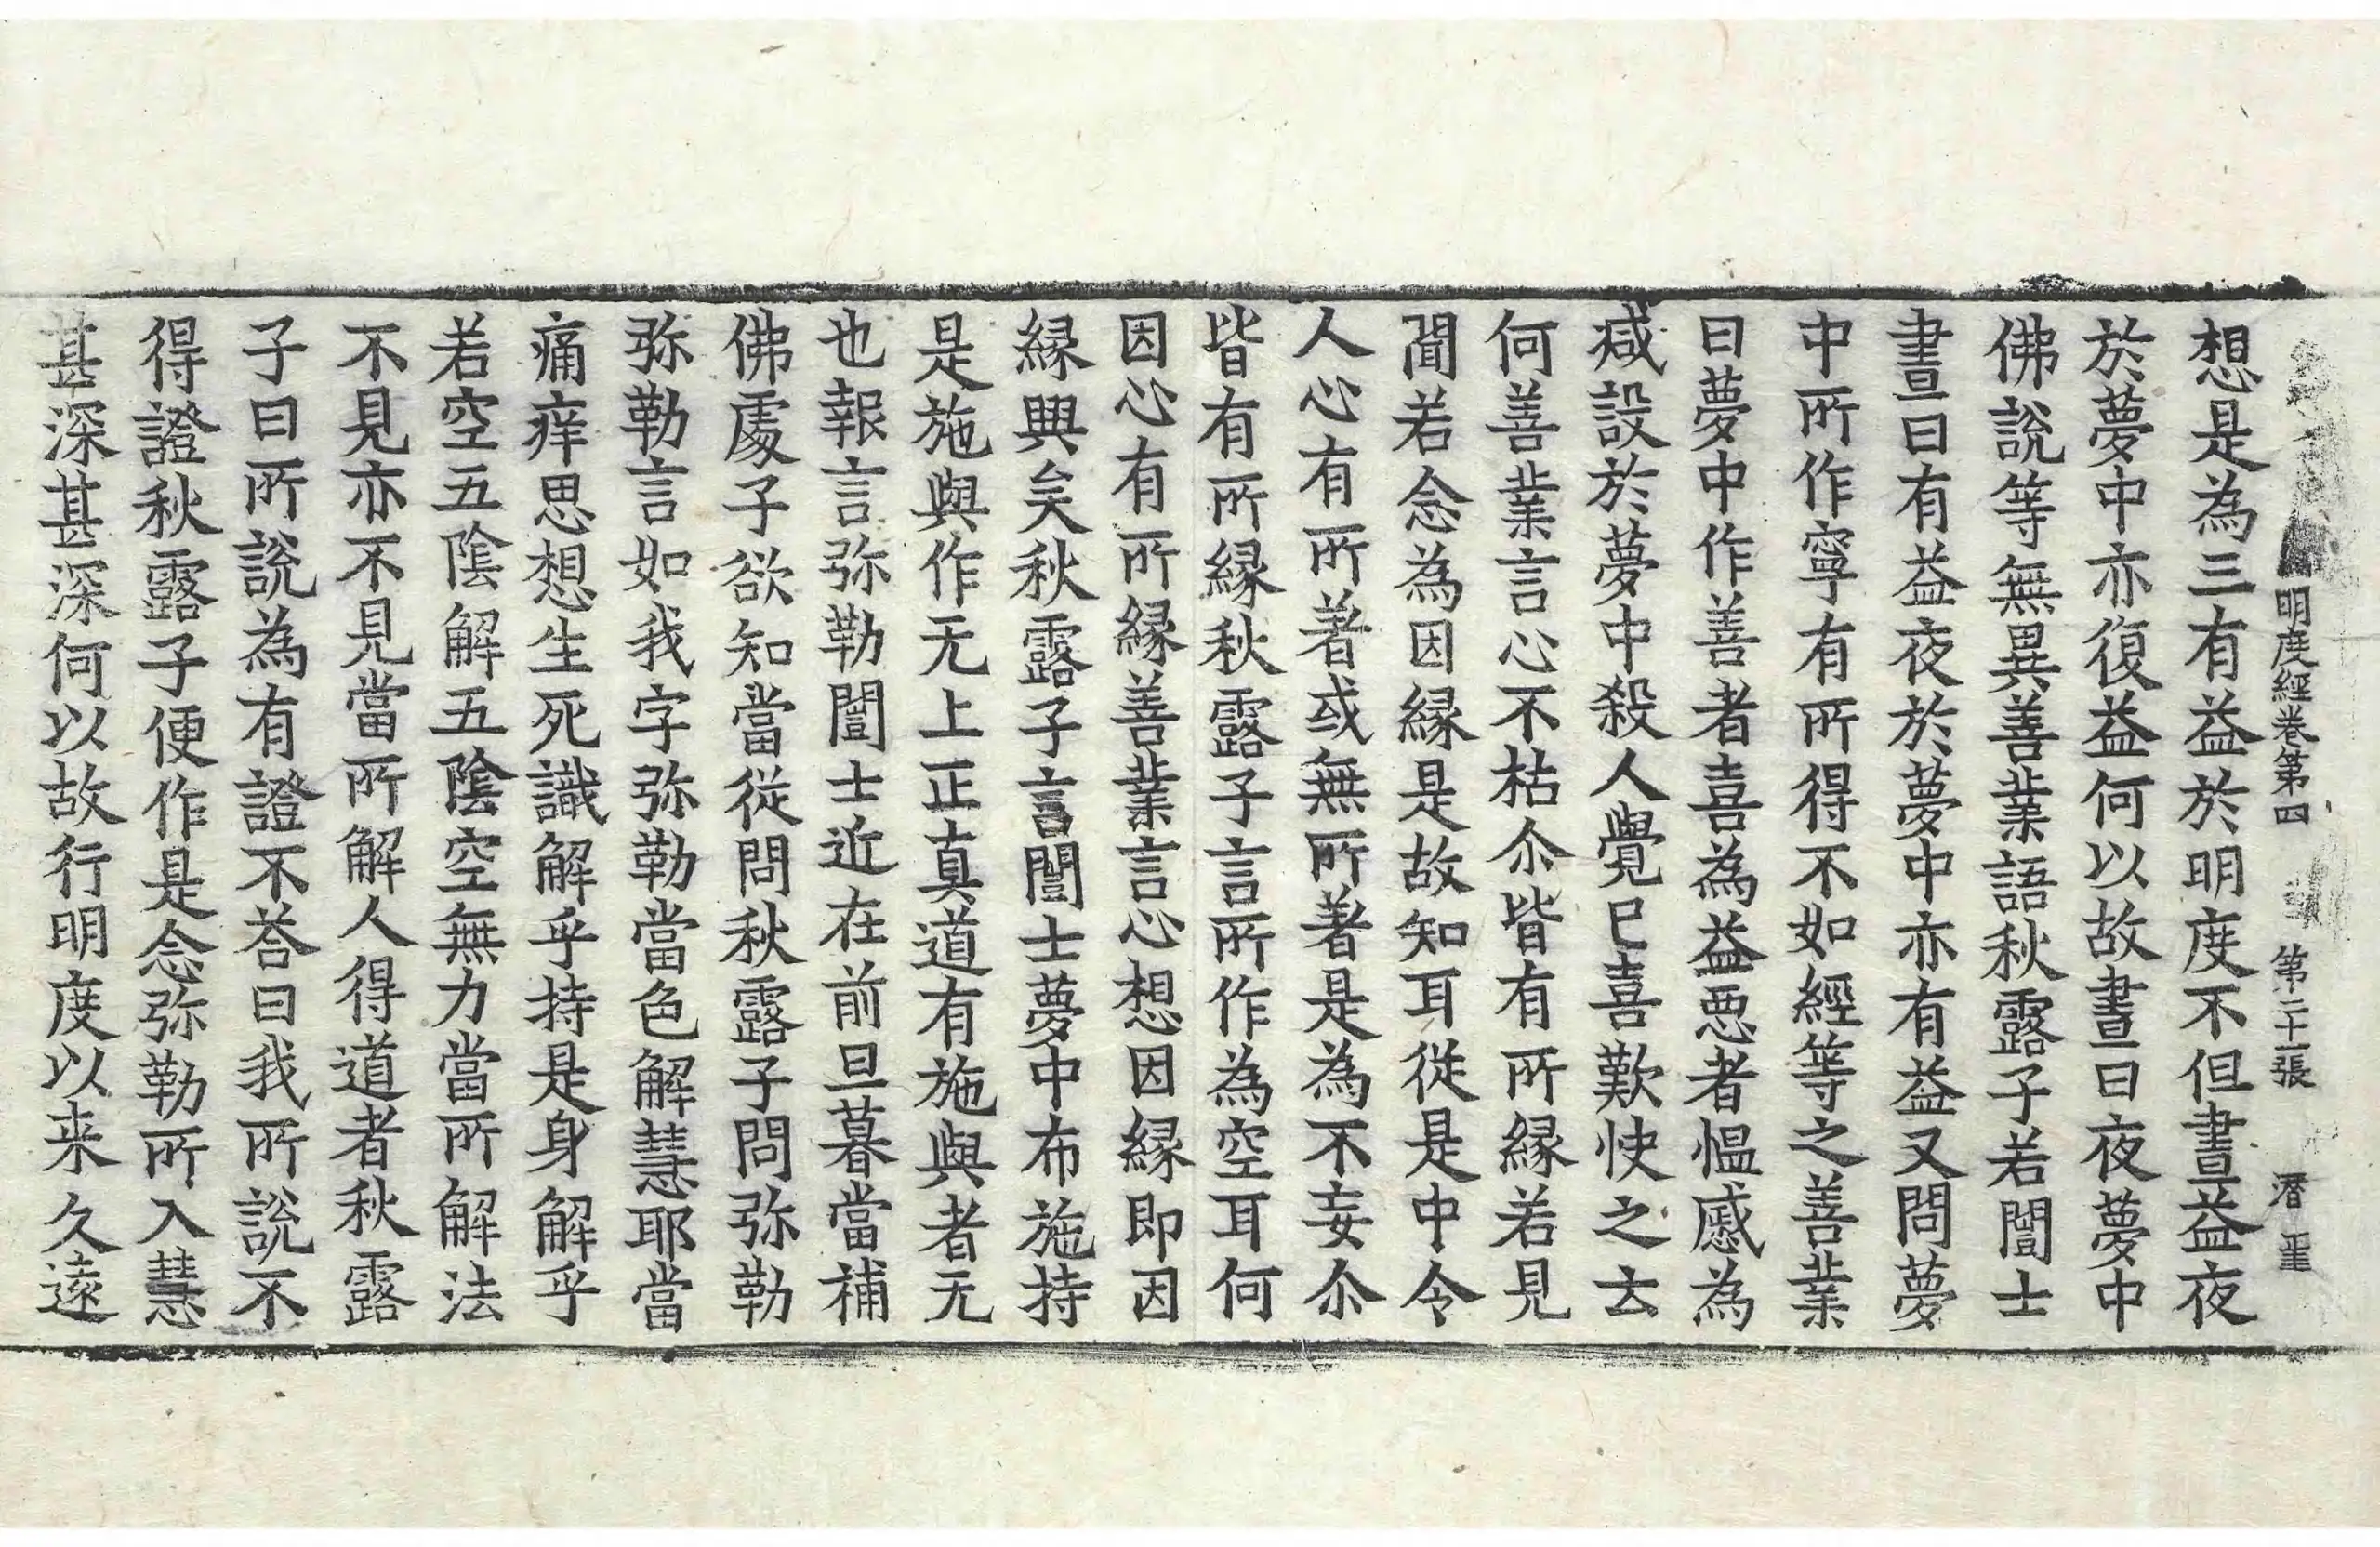 明度經卷第四 第二十一張 潛 重
想是為三有益於明度不但晝益夜
於夢中亦復益何以故晝日夜夢中
佛說等無異善業語秋露子若闓士
晝日有益夜於夢中亦有益又問夢
中所作寧有所得不如經等之善業
曰夢中作善者喜為益惡者愠慼為
减設於夢中殺人覺已喜歎快之云
何善業言心不枯尒皆有所緣若見
聞若念為因緣是故知耳從是中令
人心有所著或無所著是為不妄尒
皆有所緣秋露子言所作為空耳何
因心有所緣善業言心想因緣即因
緣興矣秋露子言闓士夢中布施持
是施與作无上正真道有施與者无
也報言弥勒闓士近在前旦暮當補
佛處子欲知當從問秋露子問弥勒
弥勒言如我字弥勒當色解慧耶當
痛痒思想生死識解乎持是身解乎
若空五陰解五陰空無力當所解法
不見亦不見當所解人得道者秋露
子曰所說為有證不荅曰我所說不
得證秋露子便作是念弥勒所入慧
甚深甚深何以故行明度以来久遠